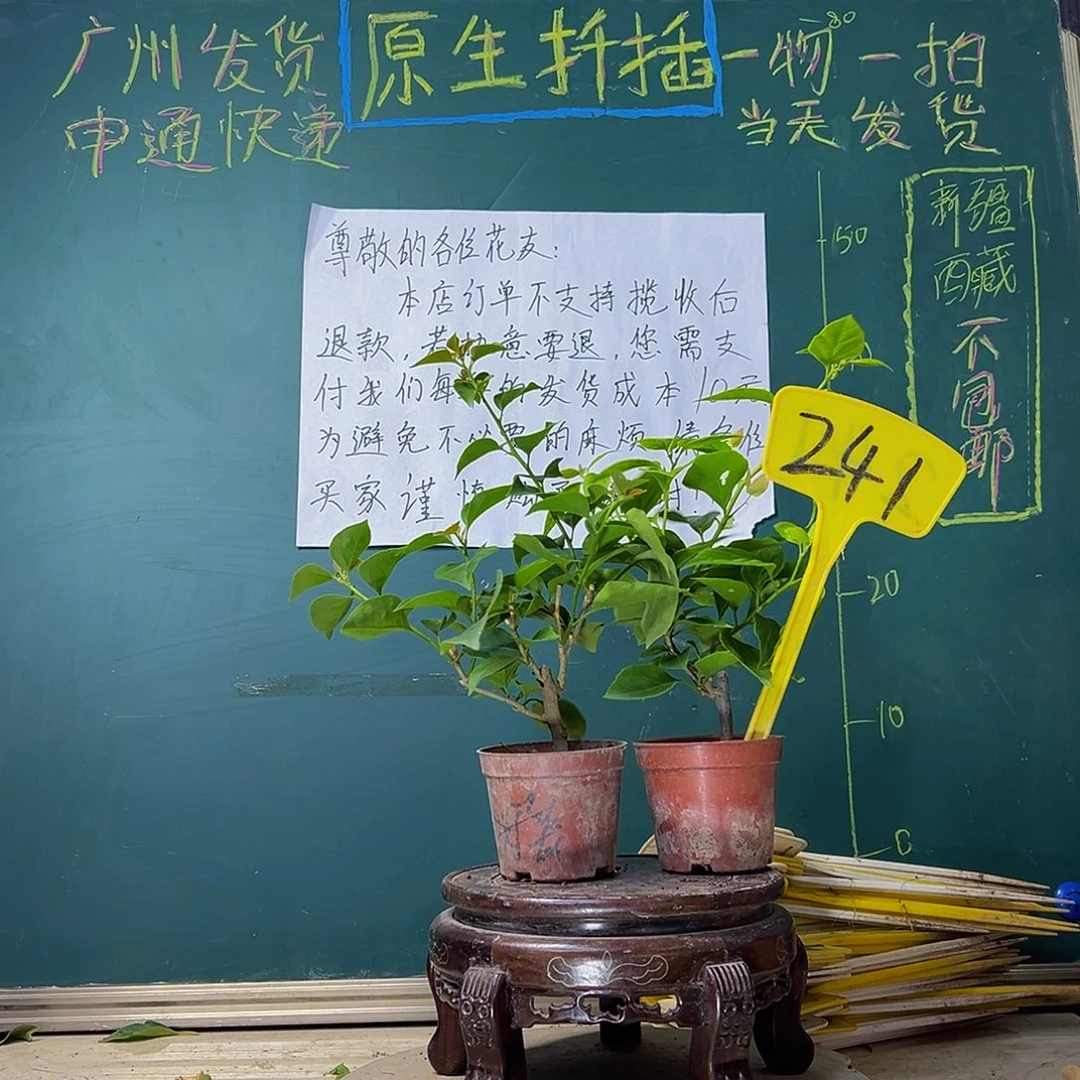 广州发货
申通快递
原生扦插
一物一拍
当天发货
80
50
新疆
西藏
不包邮
尊敬的各位花友：
本店订单不支持揽收后
退款，若执意要退，您需支
付我们每 发货成本10元
为避免不必要的麻烦 请各位
买家谨慎
241
20
10
0